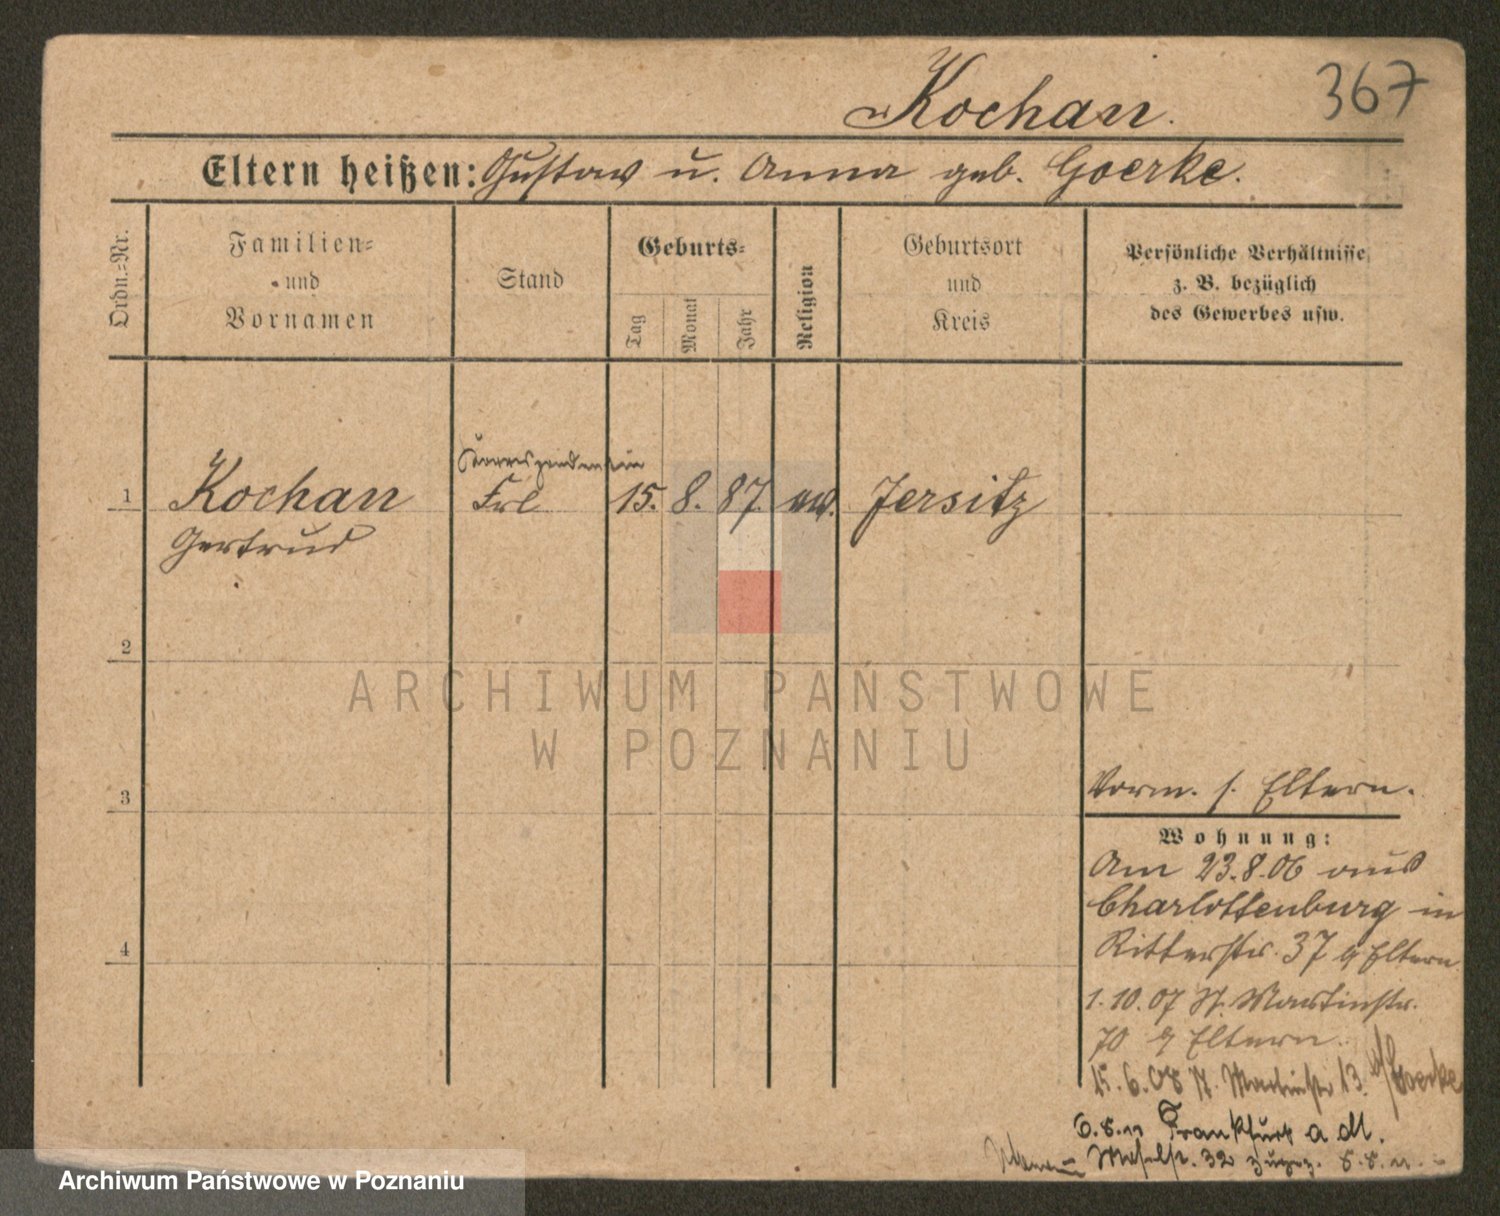 367
Kochan.
Eltern heißen: Gustav u. Anna geb. Goerke.
Ordn.=Nr.
Familien=
und
Vornamen
Stand
Geburts=
Tag
Monat
Jahr
Religion
Geburtsort
und
Kreis
Persönliche Verhältnisse
z. B. bezüglich
des Gewerbes usw.
Korrespondentin
1 Kochan Frl 15. 8. 87. ev. Jersitz
Gertrud
2
ARCHIWUM PAŃSTWOWE
W POZNANIU
3
Vorm. s. Eltern.
Wohnung:
Am 23.8.06 aus
Charlottenburg in
Ritterstr. 37 Eltern
4
1.10.07 St. Martinstr.
70 Eltern.
15.6.08 St. Martinstr 13. Goerke
Frankfurt a M.
32 zurgez.
Archiwum Państwowe w Poznaniu